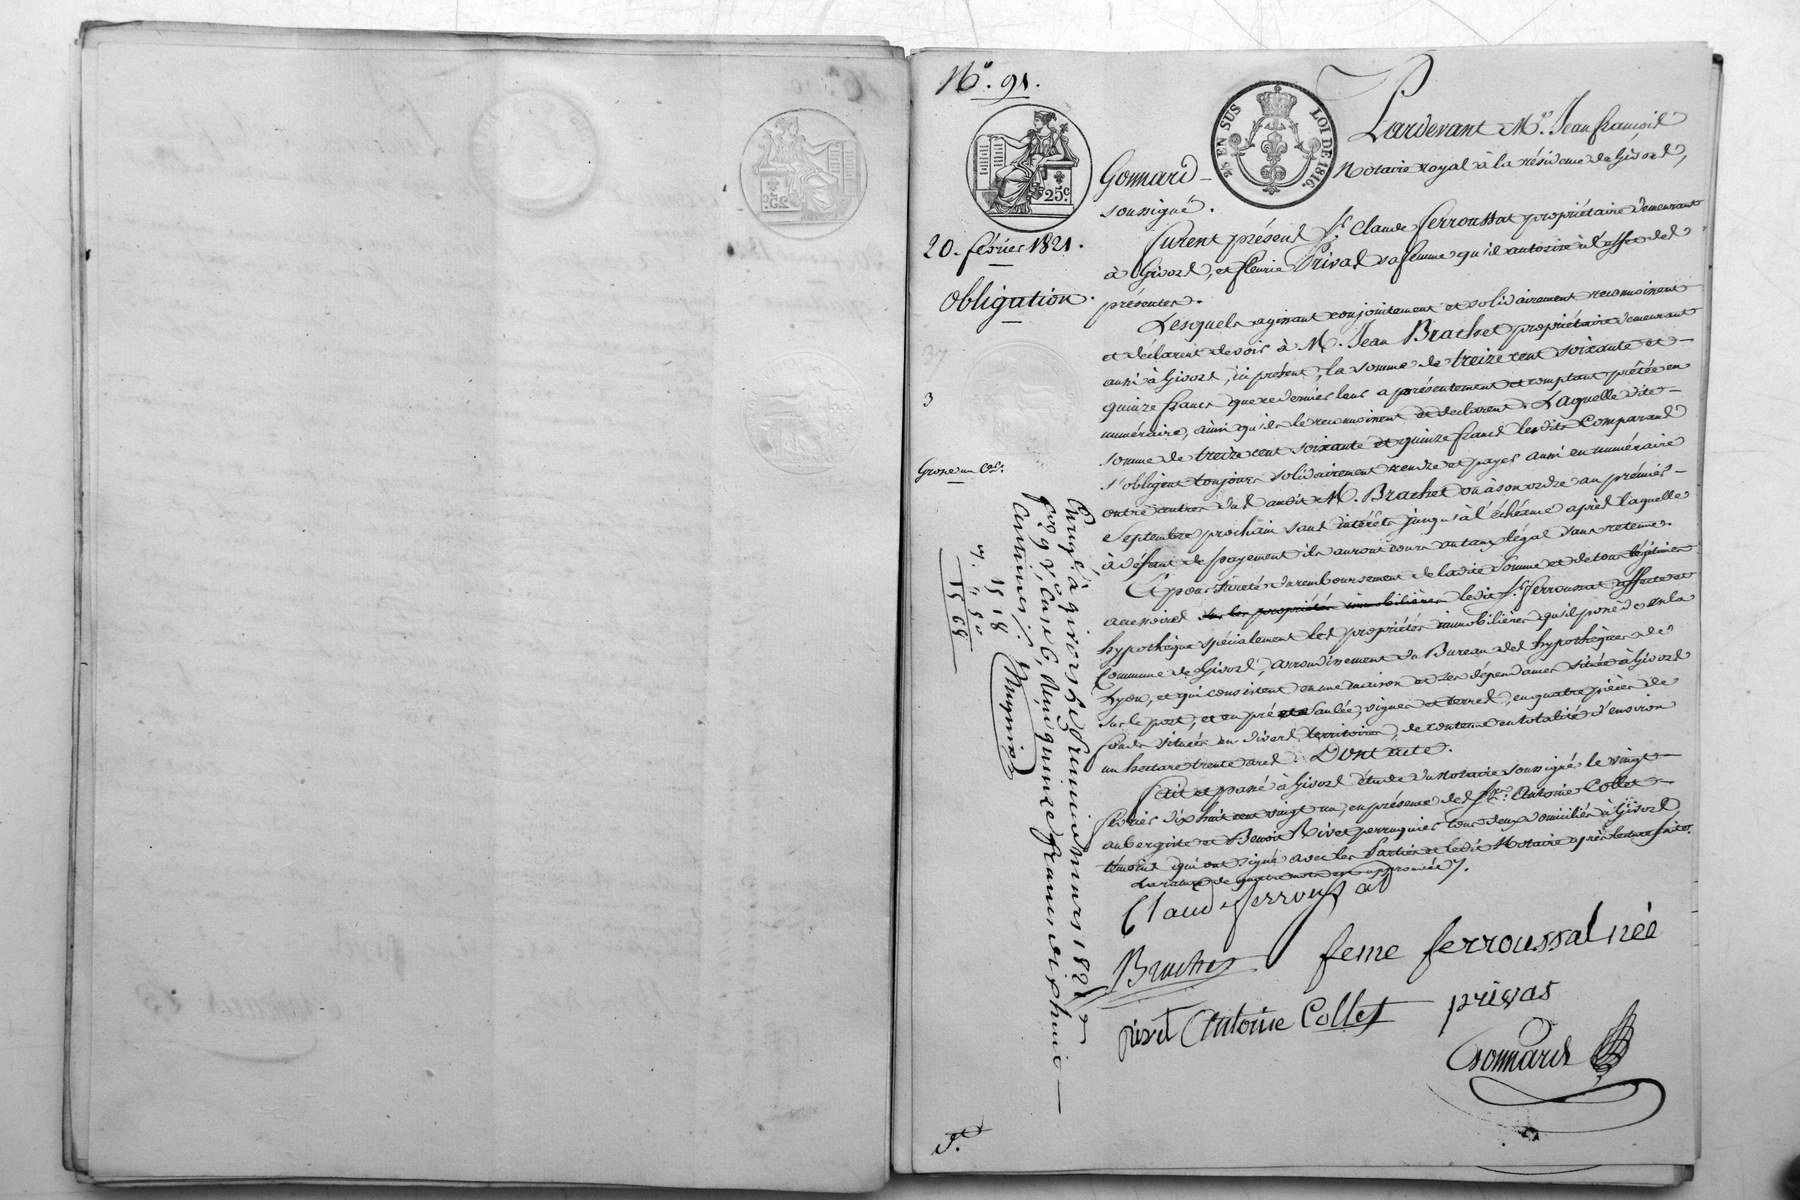 N.° 91.
25.c
2/5 EN SUS LOI DE 1816.
20. février 1821.
Obligation.
37
3
Grosse un Cah.
Pardevant M.e Jean françois
Gonnard Notaire royal à la résidence de Givors,
soussigné.
furent présens S.r Claude ferroussat propriétaire demeurant
à Givors, et fleurie Privas sa femme qu'il autorise à l'effet des
présentes.
Lesquels agissant conjointement et solidairement reconnoissent
et déclarent devoir à M. Jean Brachet propriétaire demeurant
aussi à Givors, ici présent, la somme de treize cent soixante et
quinze francs que ce dernier leur a présentement et comptant prêtée en
numéraire, ainsi qu'ils le reconnoissent et declarent. Laquelle dite
somme de treize cent soixante et quinze francs lesdits Comparans
s'obligent toujours solidairement rendre et payer aussi en numéraire
audit M. Brachet ou à son ordre au prémier
Septembre prochain sans intérêts jusqu'à l'échéance après laquelle
à défaut de payement ils auront cours au taux légal sans retenue.
Et pour sûreté du remboursement de ladite somme et de tous légitimes
accessoires sur les propriétés immobilières ledit S.r ferroussat affecte et
hypothèque spécialement les propriétés immobilières qu'il possède en la
Commune de Givors, arrondissement du Bureau des hypothèques de
Lyon, et qui consistent en une maison et ses dépendances située à Givors
sur le port, et en pré saulée, vignes et terres, en quatre pièces de
fonds situées en divers territoires, de contenue en totalité d'environ
un hectare trente ares. Dont acte.
Fait et passé à Givors étude du notaire soussigné le vingt
février dix huit cent vingt un, en présence des S.rs Antoine Collet
aubergiste et Benoit Rivet perruquier tous deux domiciliés à Givors
témoins qui ont signé avec les Parties et ledit Notaire après lecture faite.
La rature de quatre mots est approuvée.
Claude ferroussat
Brachet feme ferroussat née
privas
rivet Antoine Collet
Gonnard
Enregé à givors le premier mars 1821
f.° 9 v., Case 6, Reçu quinze francs dix huit
centimes
15 18
7. " 50
15 68